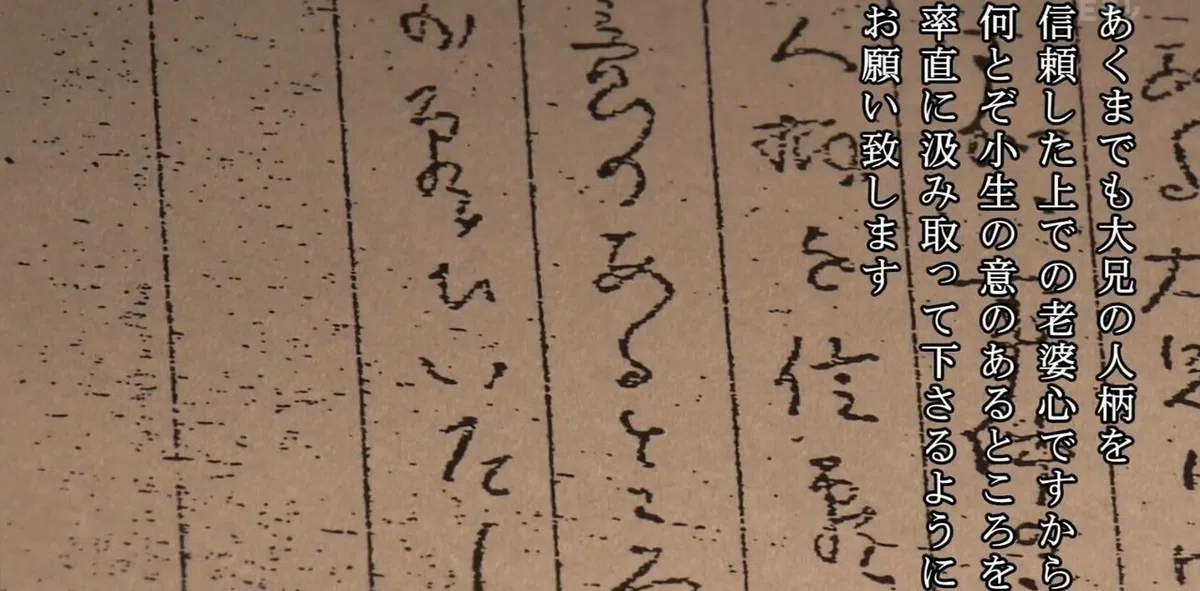 あくまでも大兄の人柄を
信頼した上での老婆心ですから
何とぞ小生の意のあるところを
率直に汲み取って下さるように
お願い致します
人柄を信頼
意のあるところ
いたし